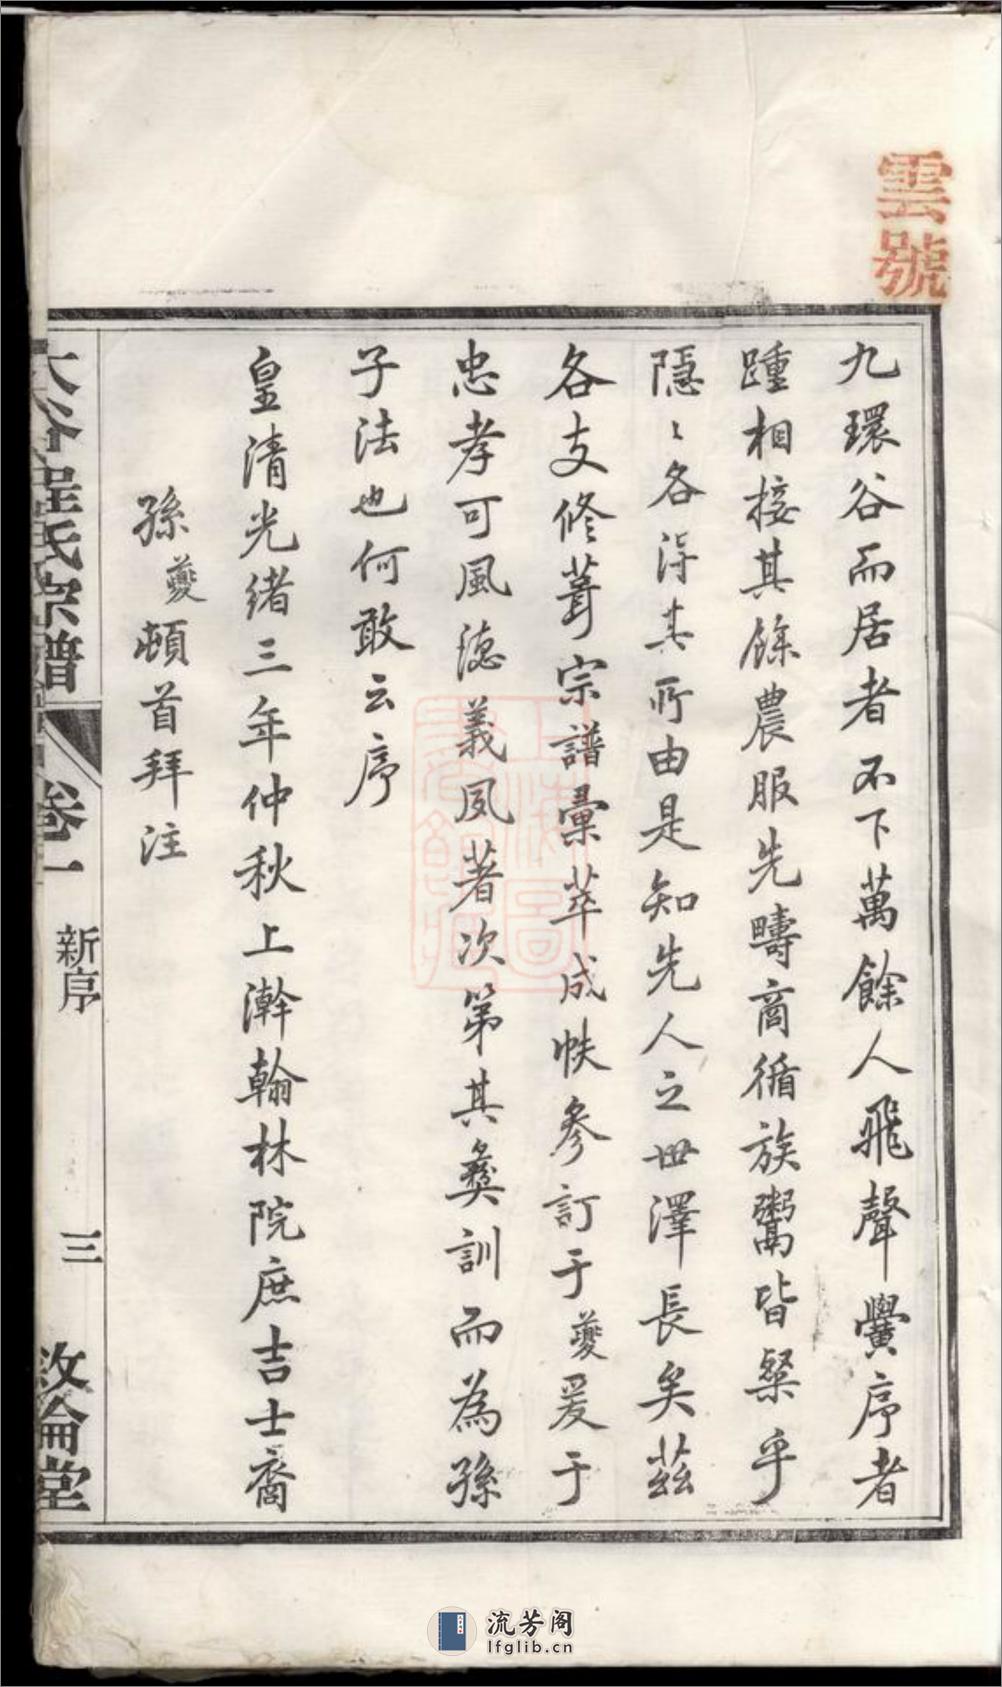 雲號
九環谷而居者不下萬餘人飛聲黌序者
踵相接其餘農服先疇商循族鬻皆粲乎
隱〻各得其所由是知先人之世澤長矣茲
各支修葺宗譜彙萃成帙參訂于夔爰于
忠孝可風德義夙著次第其彝訓而為孫
子法也何敢云序
皇清光緒三年仲秋上澣翰林院庶吉士裔
孫夔頓首拜注
大谷程氏宗譜 卷一 新序 三 敘倫堂
上海圖書館藏
流芳阁
lfglib.cn